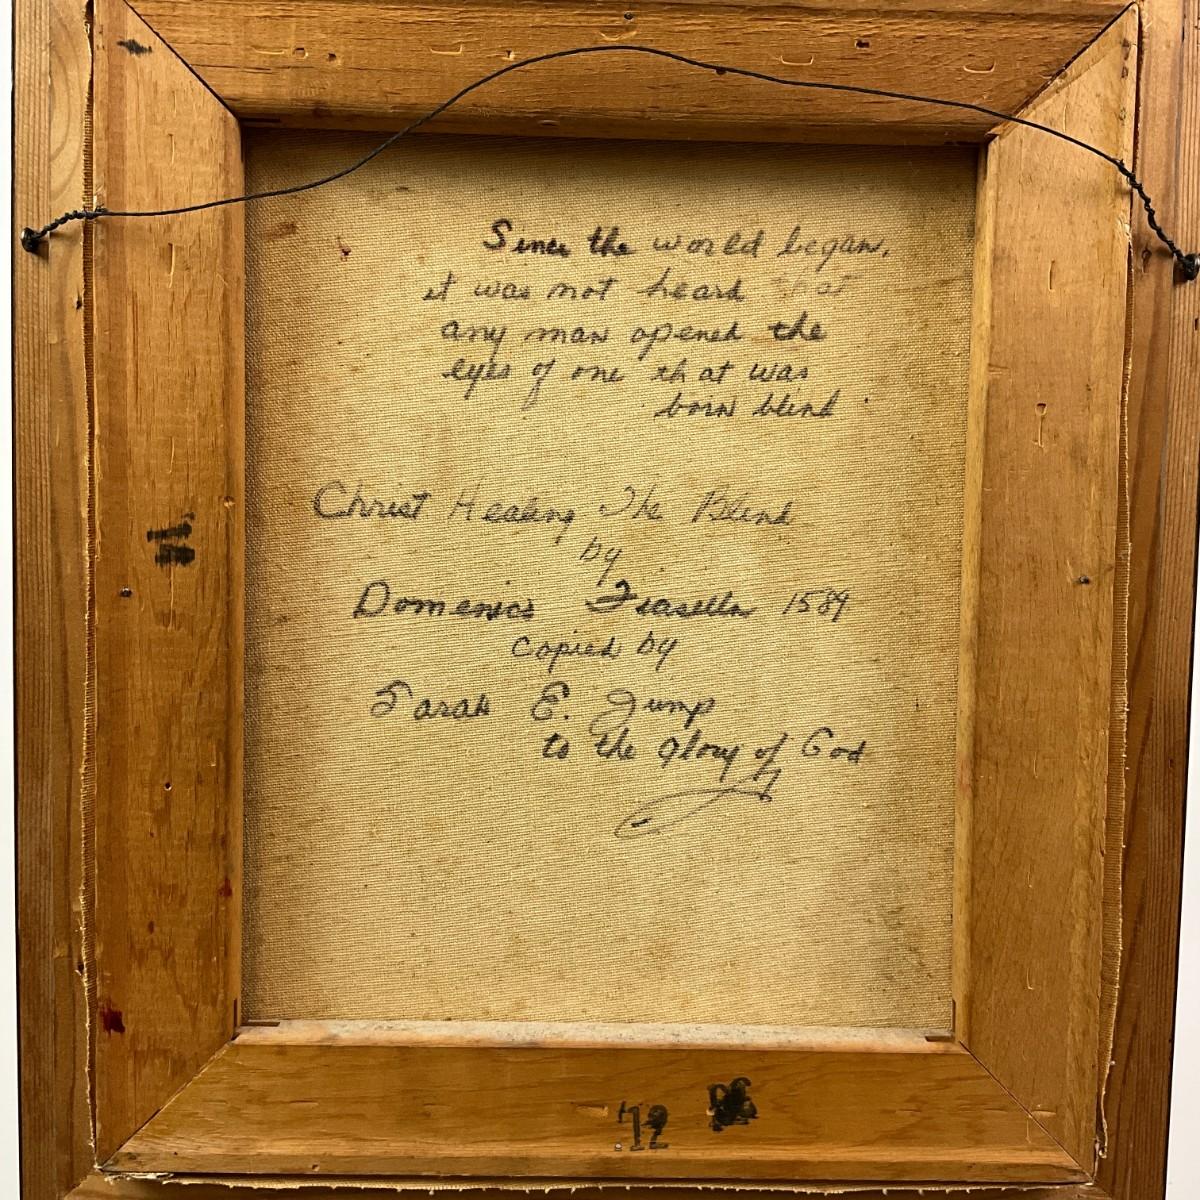 Since the world began,
it was not heard that
any man opened the
eyes of one that was
born blind
Christ Healing The Blind
by
Domenico Fiasella 1589
Copied by
Sarah E. Jump
to the glory of God
'12